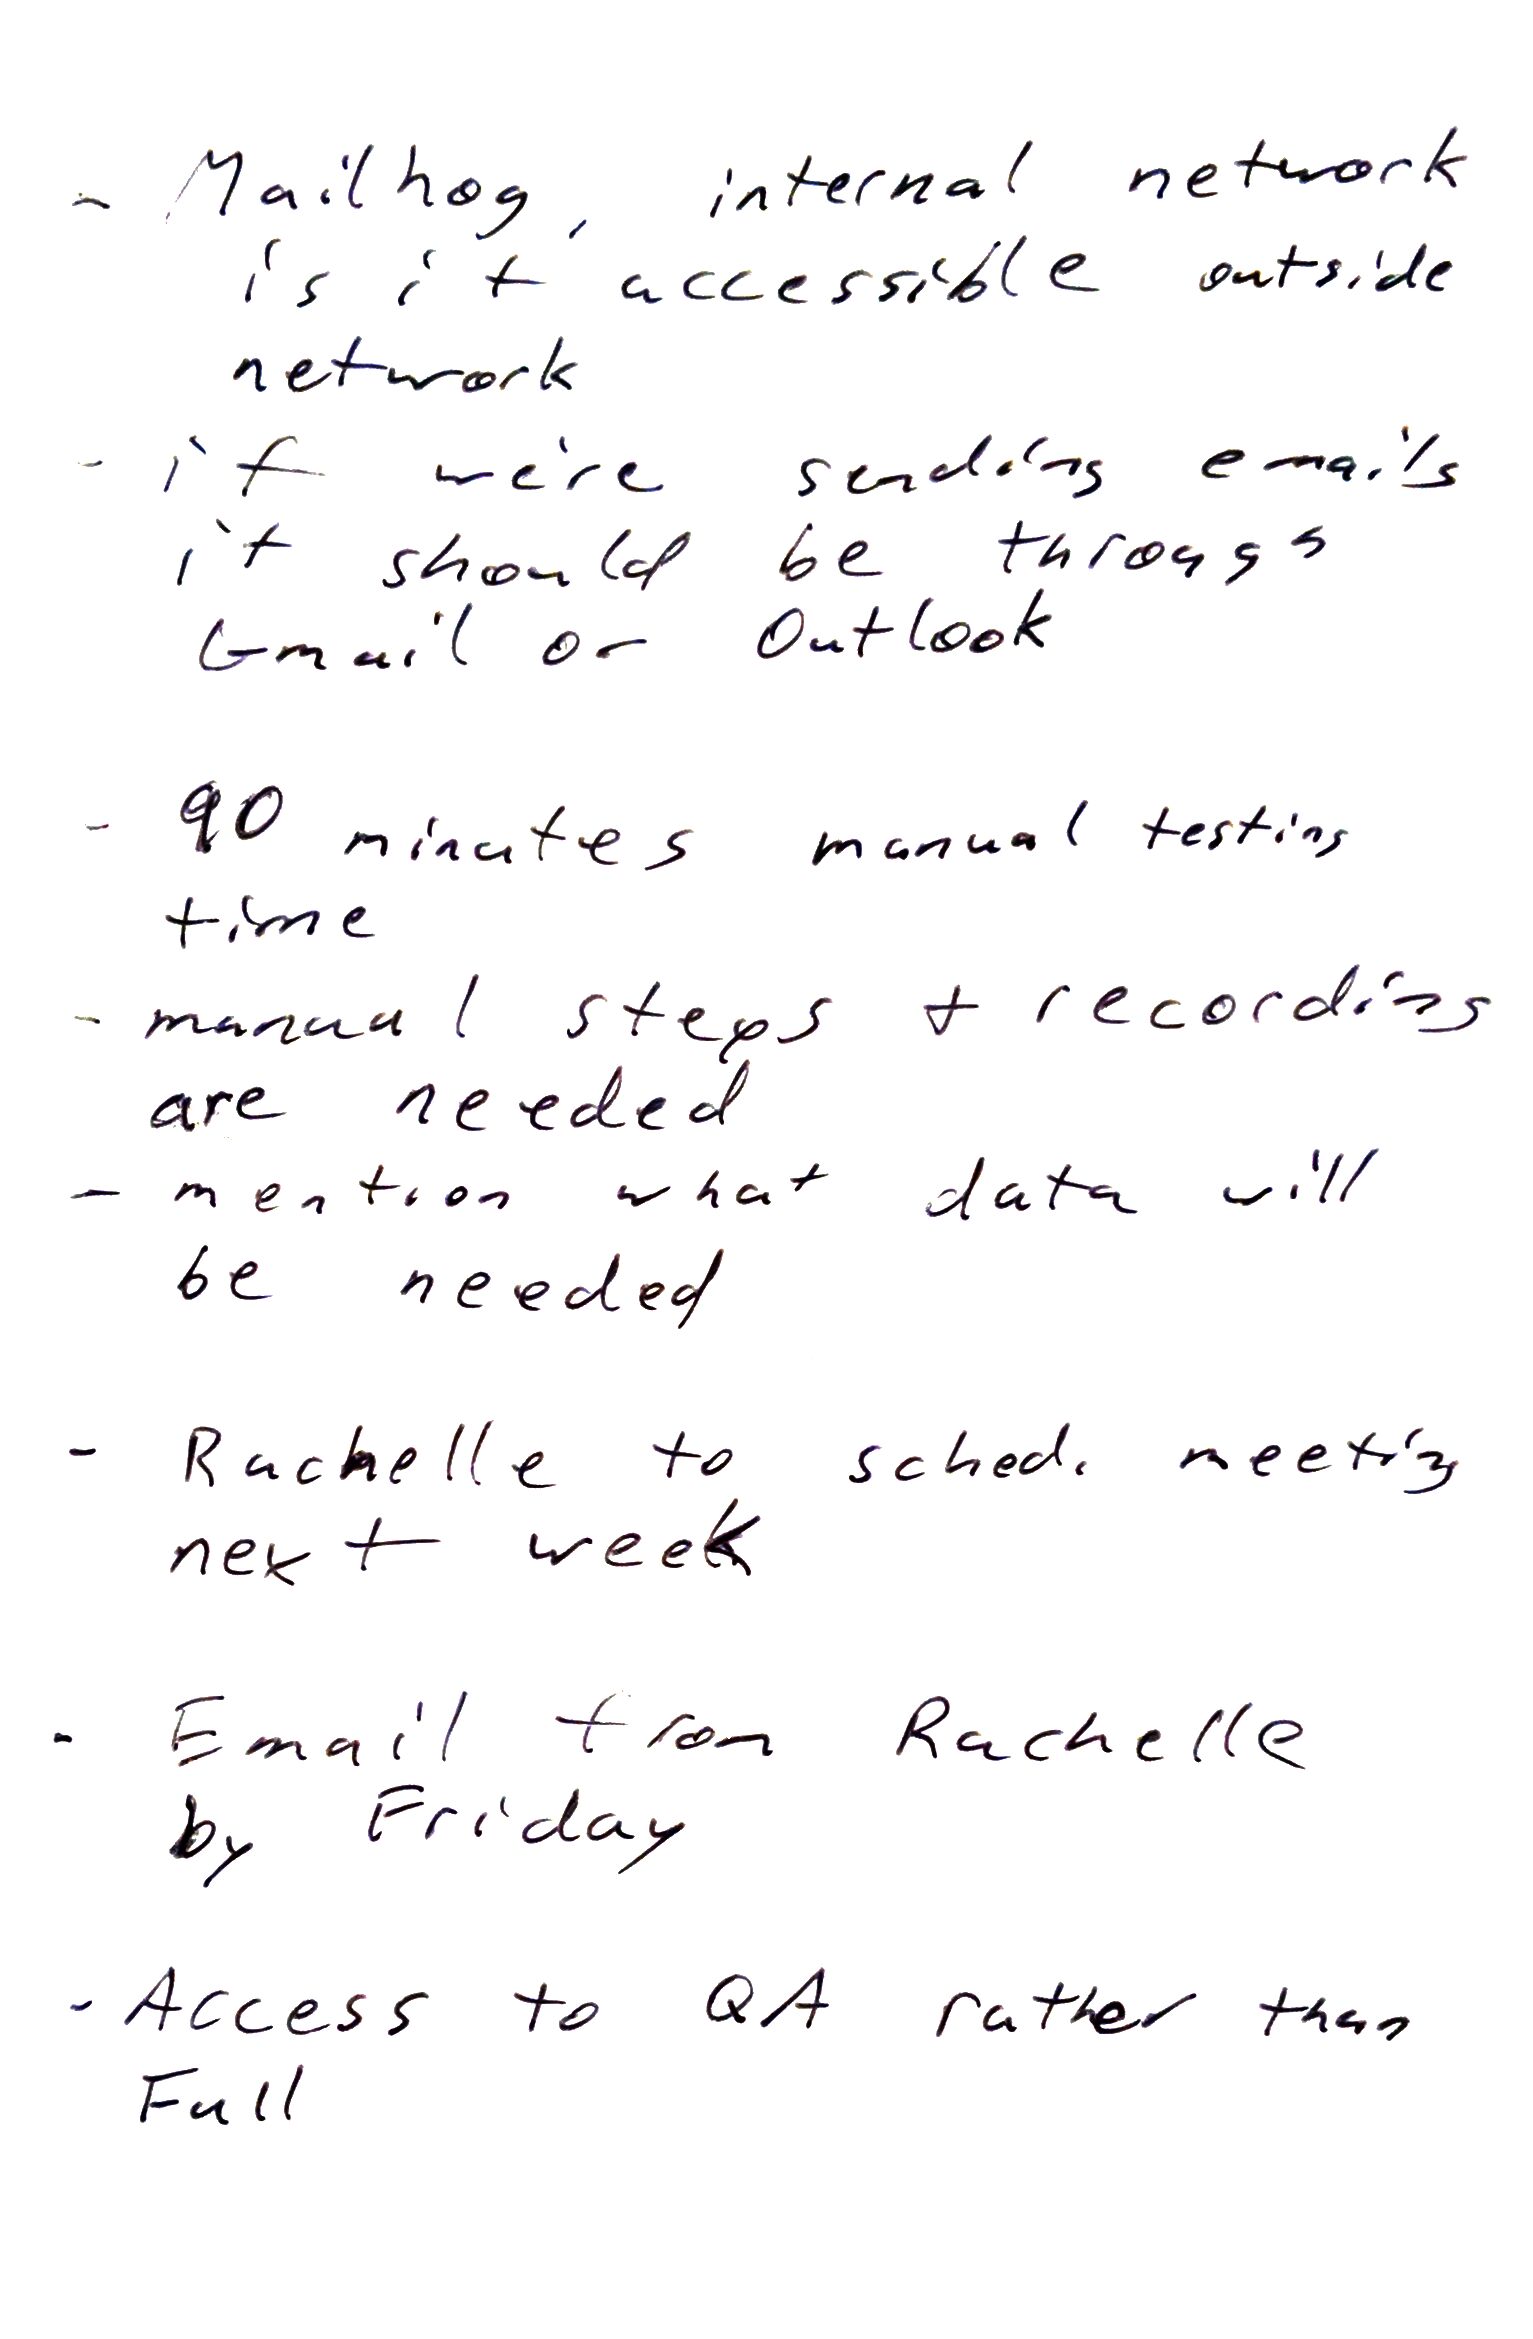 - Mailhog, internal network
is it accessible outside
network
- if we're sending emails
it should be through
Gmail or Outlook
- 90 minutes manual testing
time
- manual steps + recording
are needed
- mention what data will
be needed
- Rachelle to sched. meeting
next week
- Email from Rachelle
by Friday
- Access to QA rather than
Full